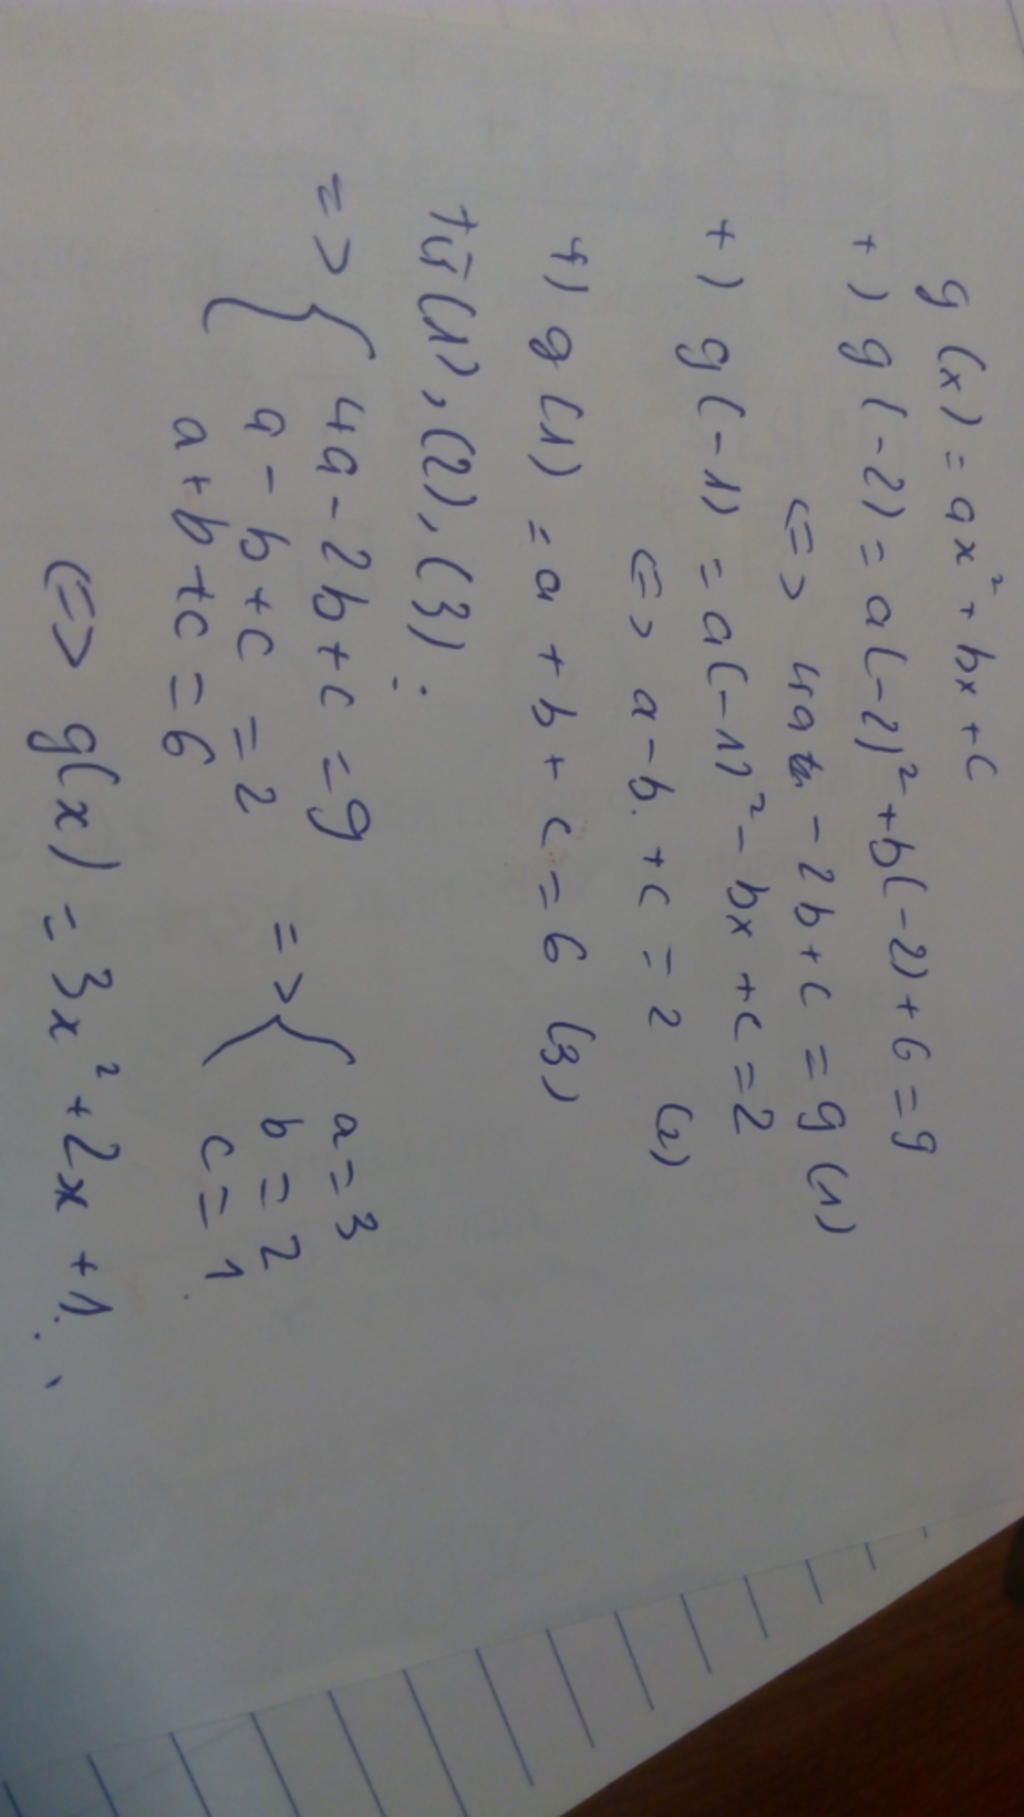 g(x) = ax² + bx + c
+) g(-2) = a(-2)² + b(-2) + 6 = 9
<=> 4a - 2b + c = 9 (1)
+) g(-1) = a(-1)² - bx + c = 2
<=> a - b + c = 2 (2)
+) g(1) = a + b + c = 6 (3)
Từ (1), (2), (3) :
=> { 4a - 2b + c = 9 => { a = 3
a - b + c = 2 b = 2
a + b + c = 6 c = 1
<=> g(x) = 3x² + 2x + 1.